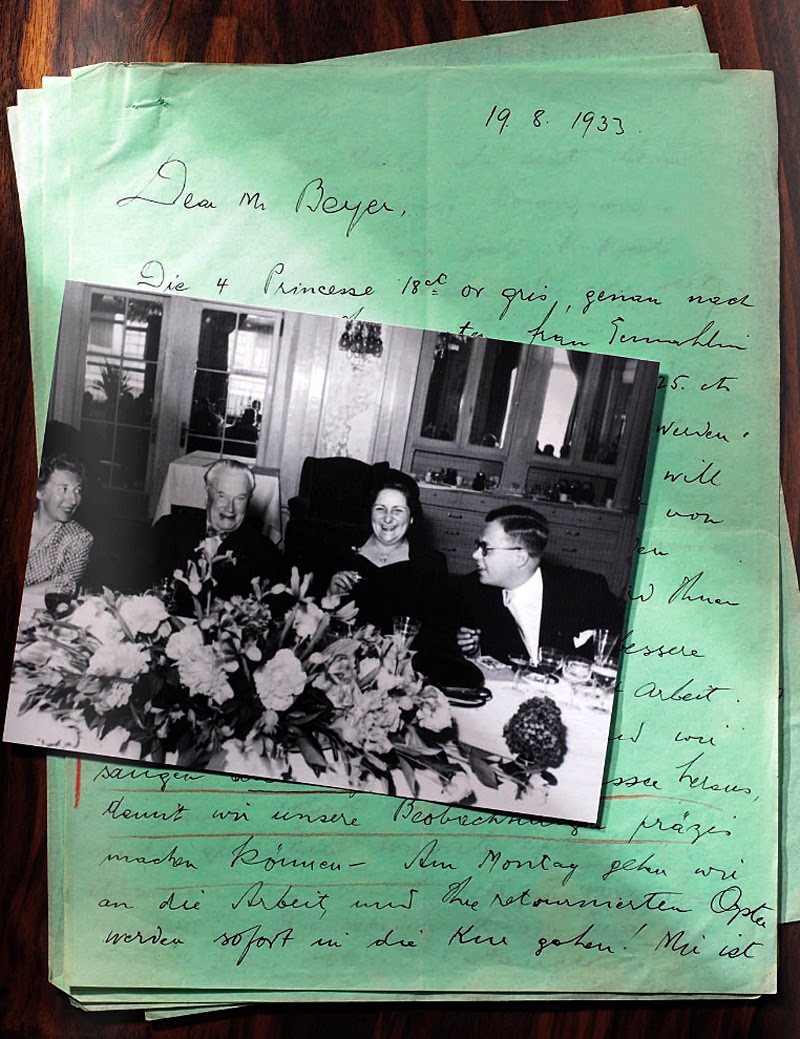 19. 8. 1933.
Dear Mr Beyer,
Die 4 Princesse 18ct or gris, genau nach
frau Gemahlin
25. cts
werden.
will
von
Ihnen
bessere
arbeit.
wir
saugen heraus,
damit wir unsere Beobachtungen präzis
machen können – Am Montag gehen wir
an die Arbeit, und Ihre retournierten Oyster
werden sofort in die Kur gehen! Mir ist